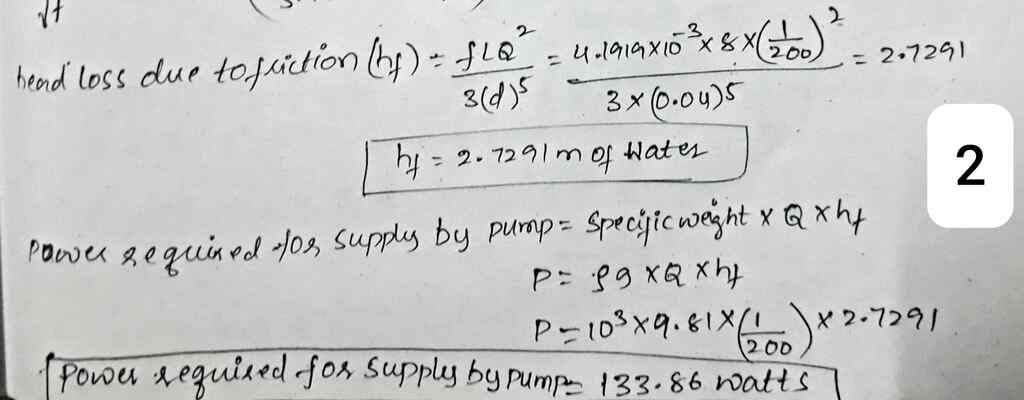 √f
head loss due to friction (hf) = fLQ² / 3(d)⁵ = 4.1919×10⁻³×8×(1/200)² / 3×(0.04)⁵ = 2.7291
hf = 2.7291 m of Water
2
Power required for supply by pump = Specific weight × Q × hf
P = ρg × Q × hf
P = 10³×9.81×(1/200)×2.7291
Power required for supply by pump = 133.86 watts